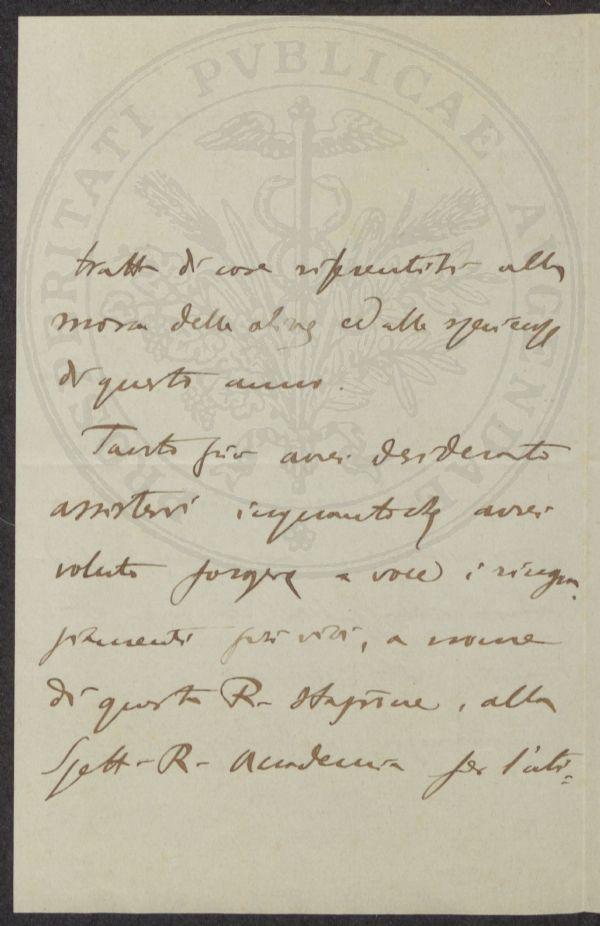 PROSPERITATI PVBLICAE AVGENDAE
tratta di cose riferentisi alla
mosca delle olive ed alle esperienze
di questo anno.
Tanto più avrei desiderato
assistervi inquantochè avrei
voluto porgere a voce i ringra-
ziamenti più vivi, a nome
di questa R. Stazione, alla
Spett. R. Accademia per l'ati=